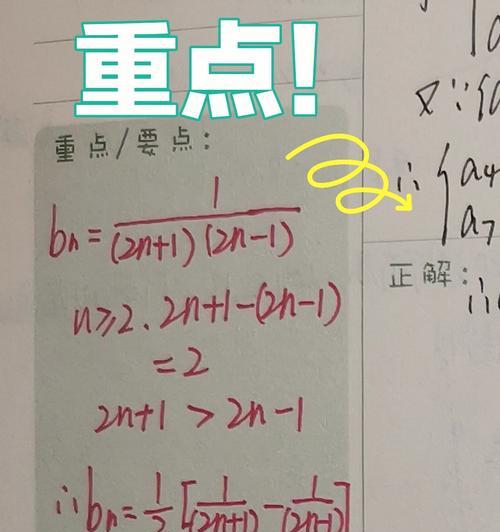 重点!
重点/要点:
bn = 1/((2n+1)(2n-1))
n≥2. 2n+1-(2n-1)
=2
2n+1 > 2n-1
∴ bn = 1/2 [1/(2n+1) - 1/(2n-1)]
又∵
∴ { a4
a7
正解: